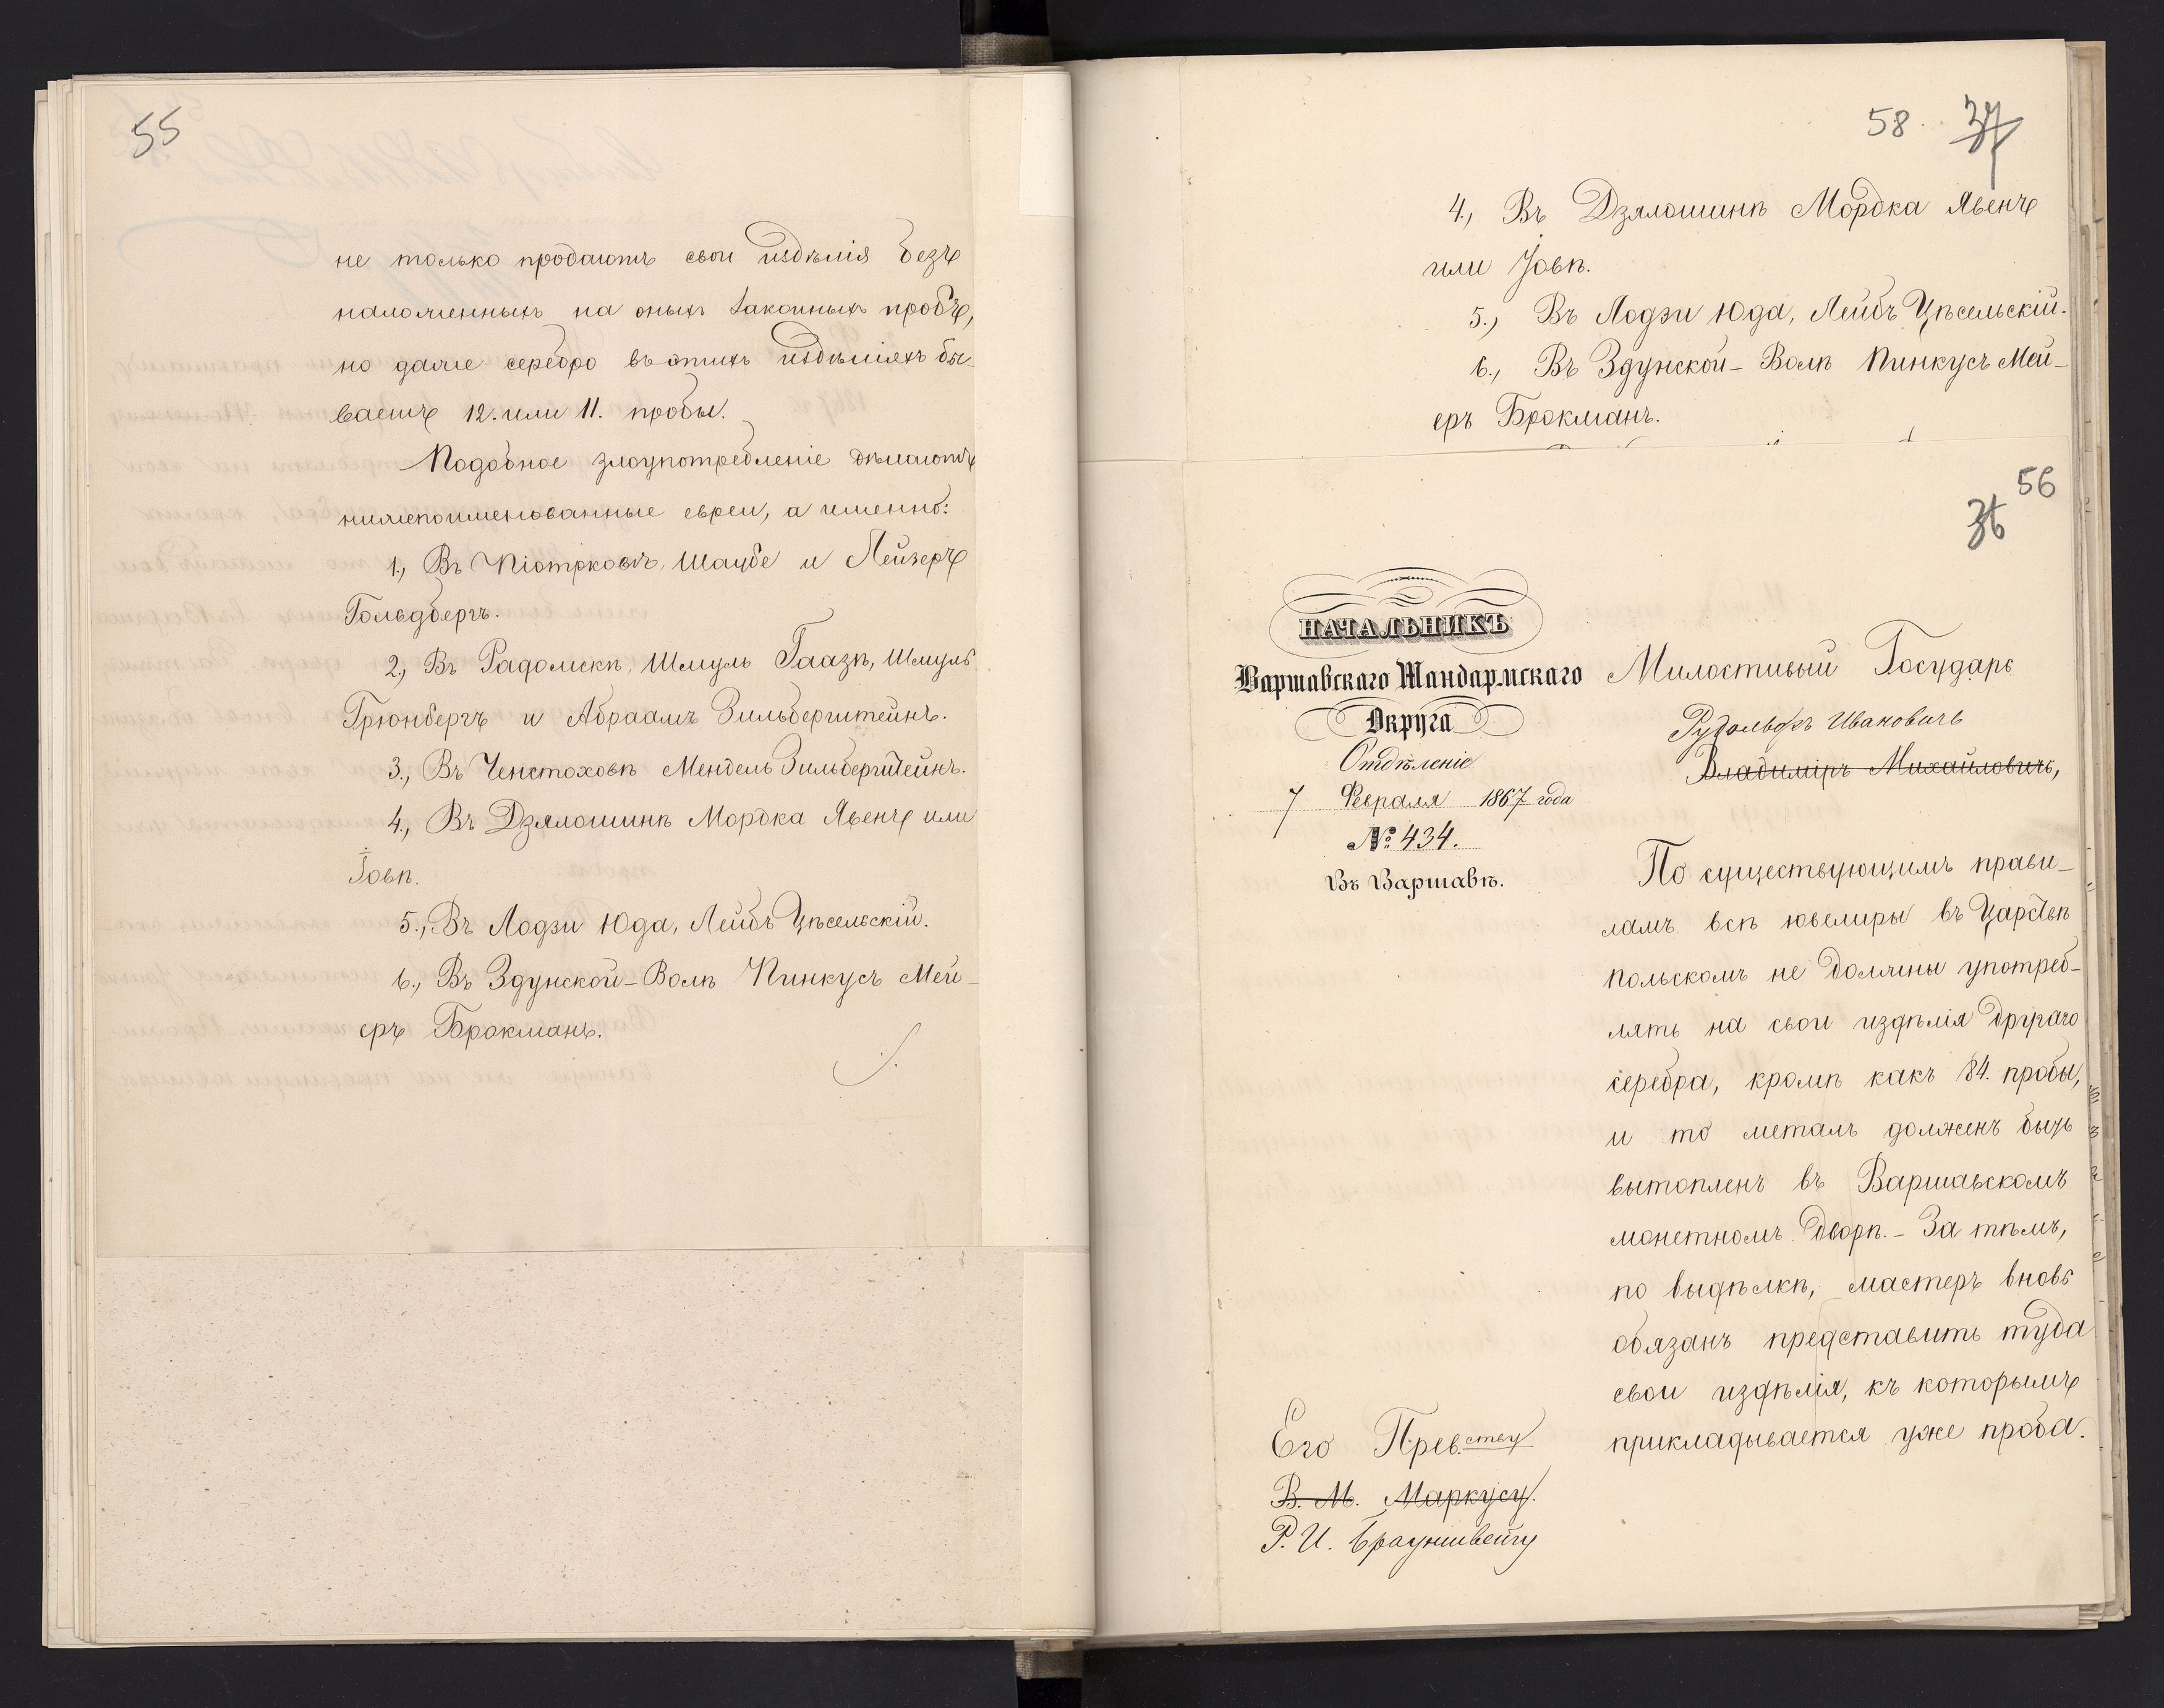 55
не только продаютъ свои издѣлія безъ
наложенныхъ на оныхъ законныхъ пробъ,
но даже серебро въ этихъ издѣліяхъ бы-
ваетъ 12. или 11. пробы.
Подобное злоупотребленіе дѣлаютъ
нижепоименованные евреи, а именно:
1., Въ Піотрковѣ, Шаубе и Лейзеръ
Гольдбергъ.
2., Въ Радомскѣ, Шмуль Гаазѣ, Шмуль
Грюнбергъ и Абраамъ Зильберштейнъ.
3., Въ Ченстоховѣ Мендель Зильберштейнъ.
4., Въ Дзялошинѣ Мордка Явенъ или
Іовѣ.
5., Въ Лодзи Юда, Лейбъ Цѣсельскій.
6., Въ Здунской-Волѣ Пинкусъ Мей-
еръ Брокманъ.
58. 37
4., Въ Дзялошинѣ Мордка Явенъ
или Іовѣ.
5., Въ Лодзи Юда, Лейбъ Цѣсельскій.
6., Въ Здунской-Волѣ Пинкусъ Мей-
еръ Брокманъ.
56
36
НАЧАЛЬНИКЪ
Варшавскаго Жандармскаго
Округа
Отдѣленіе
7 Февраля 1867 года
№ 434.
Въ Варшавѣ.
Милостивый Государь
Рудольфъ Ивановичъ
Владиміръ Михайловичъ,
По существующимъ прави-
ламъ всѣ ювелиры въ Царствѣ
Польскомъ не должны употреб-
лять на свои издѣлія другаго
серебра, кромѣ какъ 84. пробы,
и то металъ долженъ быть
вытопленъ въ Варшавскомъ
монетномъ дворѣ. - За тѣмъ,
по выдѣлкѣ, мастеръ вновь
обязанъ представить туда
свои издѣлія, къ которымъ
прикладывается уже проба.
Его Прев.ству
В. М. Маркусу.
Р. И. Брауншвейгу